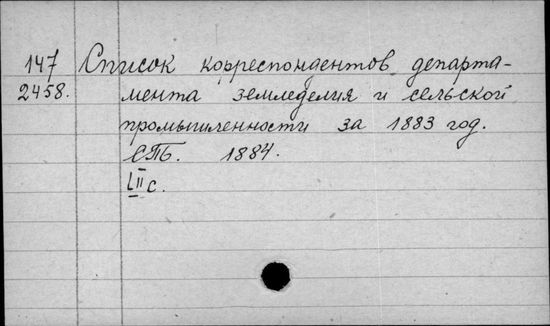 147 Список корреспондентов департа-
2458. мента земледелия и сельской
промышленности за 1883 год.
СПБ. 1884.
LII с.